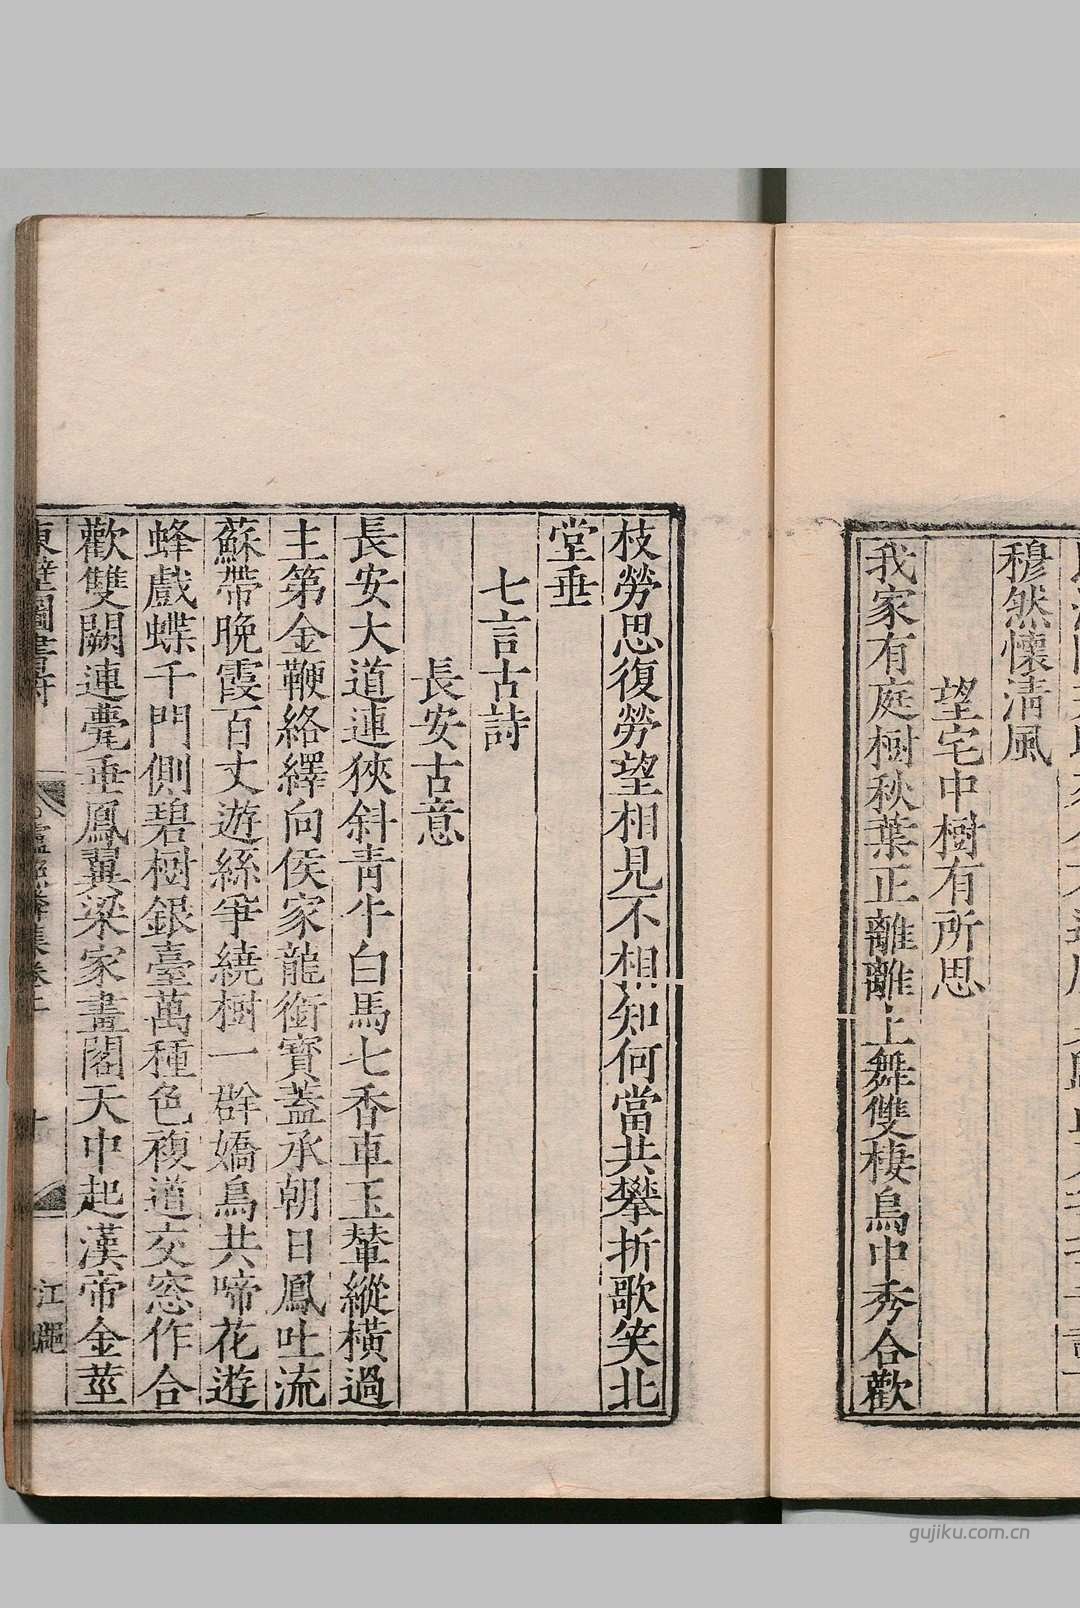 穆然懷清風
望宅中樹有所思
我家有庭樹秋葉正離離上舞雙棲鳥中秀合歡
枝勞思復勞望相見不相知何當共攀折歌笑北
堂垂
七言古詩
長安古意
長安大道連狹斜青牛白馬七香車玉輦縱橫過
主第金鞭絡繹向侯家龍銜寶蓋承朝日鳳吐流
蘇帶晚霞百丈遊絲爭繞樹一群嬌鳥共啼花遊
蜂戲蝶千門側碧樹銀臺萬種色複道交窓作合
歡雙闕連甍垂鳳翼梁家畫閣天中起漢帝金莖
gujiku.com.cn